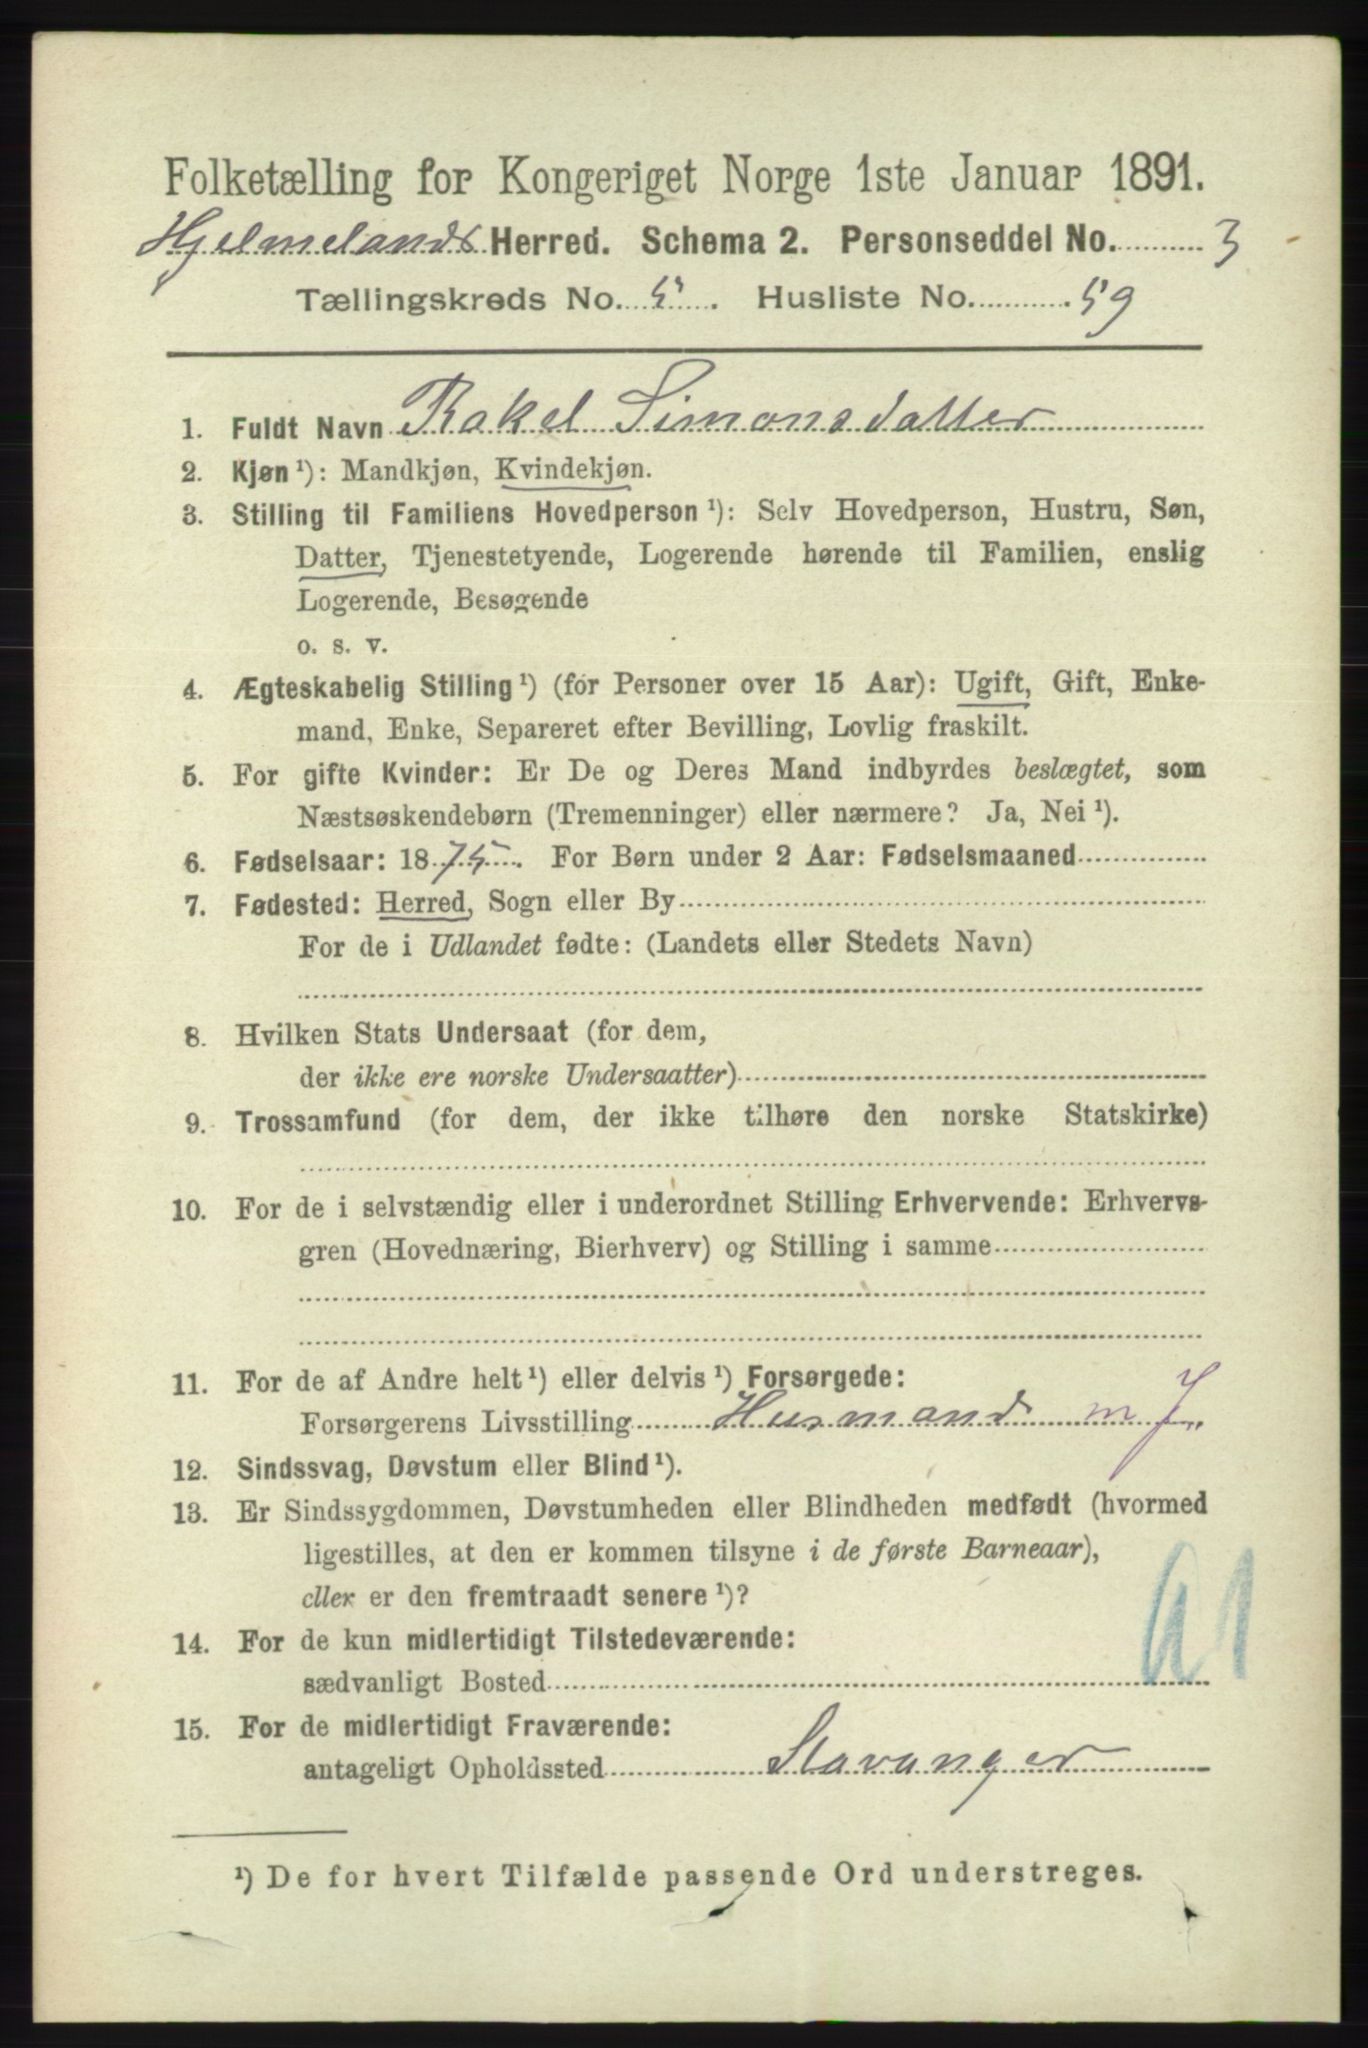 Folketælling for Kongeriget Norge 1ste Januar 1891.
Hjelmelands Herred. Schema 2. Personseddel No. 3
Tællingskreds No. 5. Husliste No. 59
1. Fuldt Navn Rakel Simonsdatter
2. Kjøn ¹): Mandkjøn, Kvindekjøn.
3. Stilling til Familiens Hovedperson ¹): Selv Hovedperson, Hustru, Søn,
Datter, Tjenestetyende, Logerende hørende til Familien, enslig
Logerende, Besøgende
o. s. v.
4. Ægteskabelig Stilling ¹) (for Personer over 15 Aar): Ugift, Gift, Enke-
mand, Enke, Separeret efter Bevilling, Lovlig fraskilt.
5. For gifte Kvinder: Er De og Deres Mand indbyrdes beslægtet, som
Næstsøskendebørn (Tremenninger) eller nærmere? Ja, Nei ¹).
6. Fødselsaar: 1875. For Børn under 2 Aar: Fødselsmaaned
7. Fødested: Herred, Sogn eller By
For de i Udlandet fødte: (Landets eller Stedets Navn)
8. Hvilken Stats Undersaat (for dem,
der ikke ere norske Undersaatter)
9. Trossamfund (for dem, der ikke tilhøre den norske Statskirke)
10. For de i selvstændig eller i underordnet Stilling Erhvervende: Erhvervs-
gren (Hovednæring, Bierhverv) og Stilling i samme
11. For de af Andre helt ¹) eller delvis ¹) Forsørgede:
Forsørgerens Livsstilling Husmand m J.
12. Sindssvag, Døvstum eller Blind ¹).
13. Er Sindssygdommen, Døvstumheden eller Blindheden medfødt (hvormed
ligestilles, at den er kommen tilsyne i de første Barneaar),
eller er den fremtraadt senere ¹)?
14. For de kun midlertidigt Tilstedeværende:
sædvanligt Bosted
15. For de midlertidigt Fraværende:
antageligt Opholdssted Stavanger
¹) De for hvert Tilfælde passende Ord understreges.